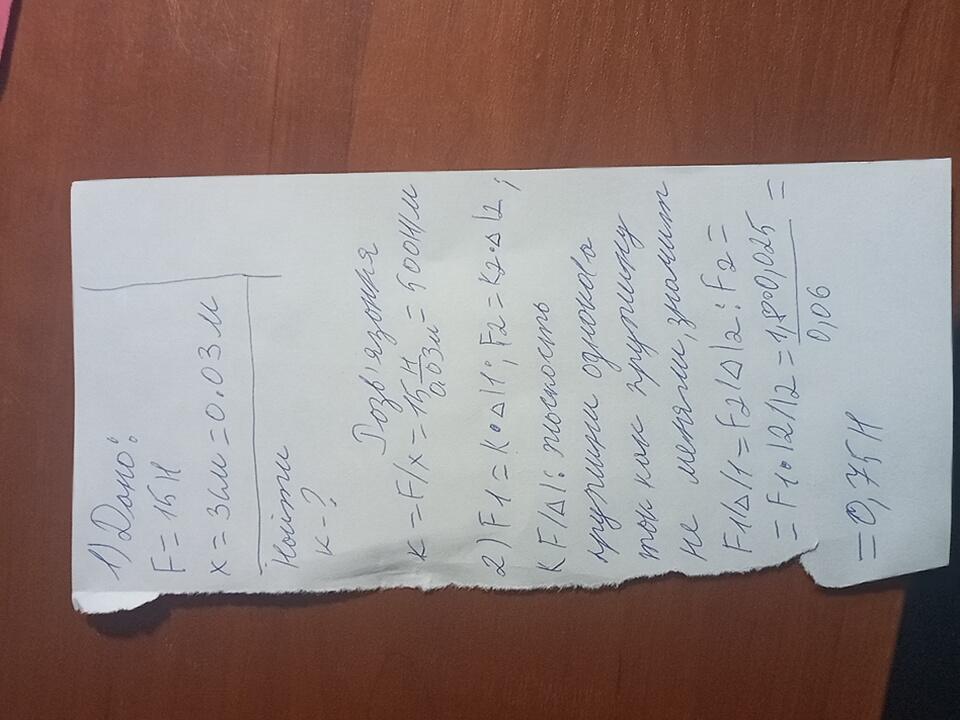 1) Дано:
F = 15Н
x = 3см = 0.03 м
Найти
к - ?
Розв'язання
к = F/x = 15 Н / 0,03м = 500Н/м
2) F1 = K•Δl1; F2 = K2•Δl2;
K F/Δl: жоскость
пружини однокова
так как пружину
не меняли, значит
F1/Δl1 = F2/Δl2: F2 =
= F1•l2/l2 = 1,8•0,025 / 0,06 =
= 0,75Н